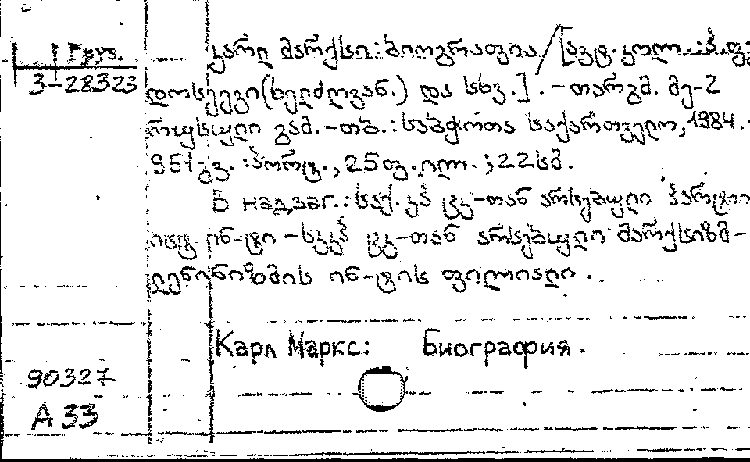 Груз.
3-28323
კარლ მარქსი: ბიოგრაფია / [ავტ. კოლ.: პ. ფე
დოსეევი (ხელმძღვან.) და სხვ.]. – თარგმ. მე-2
რუსული გამ. – თბ.: საბჭოთა საქართველო, 1984. -
951 გვ.: პორტ., 25 ფ. ილ.; 22 სმ.
В надзаг.: საქ. კპ ცკ-თან არსებული პარტიი
ისტ. ინ-ტი – სკკპ ცკ-თან არსებული მარქსიზმ-
ლენინიზმის ინ-ტის ფილიალი.
Карл Маркс: Биография.
90327
А 33